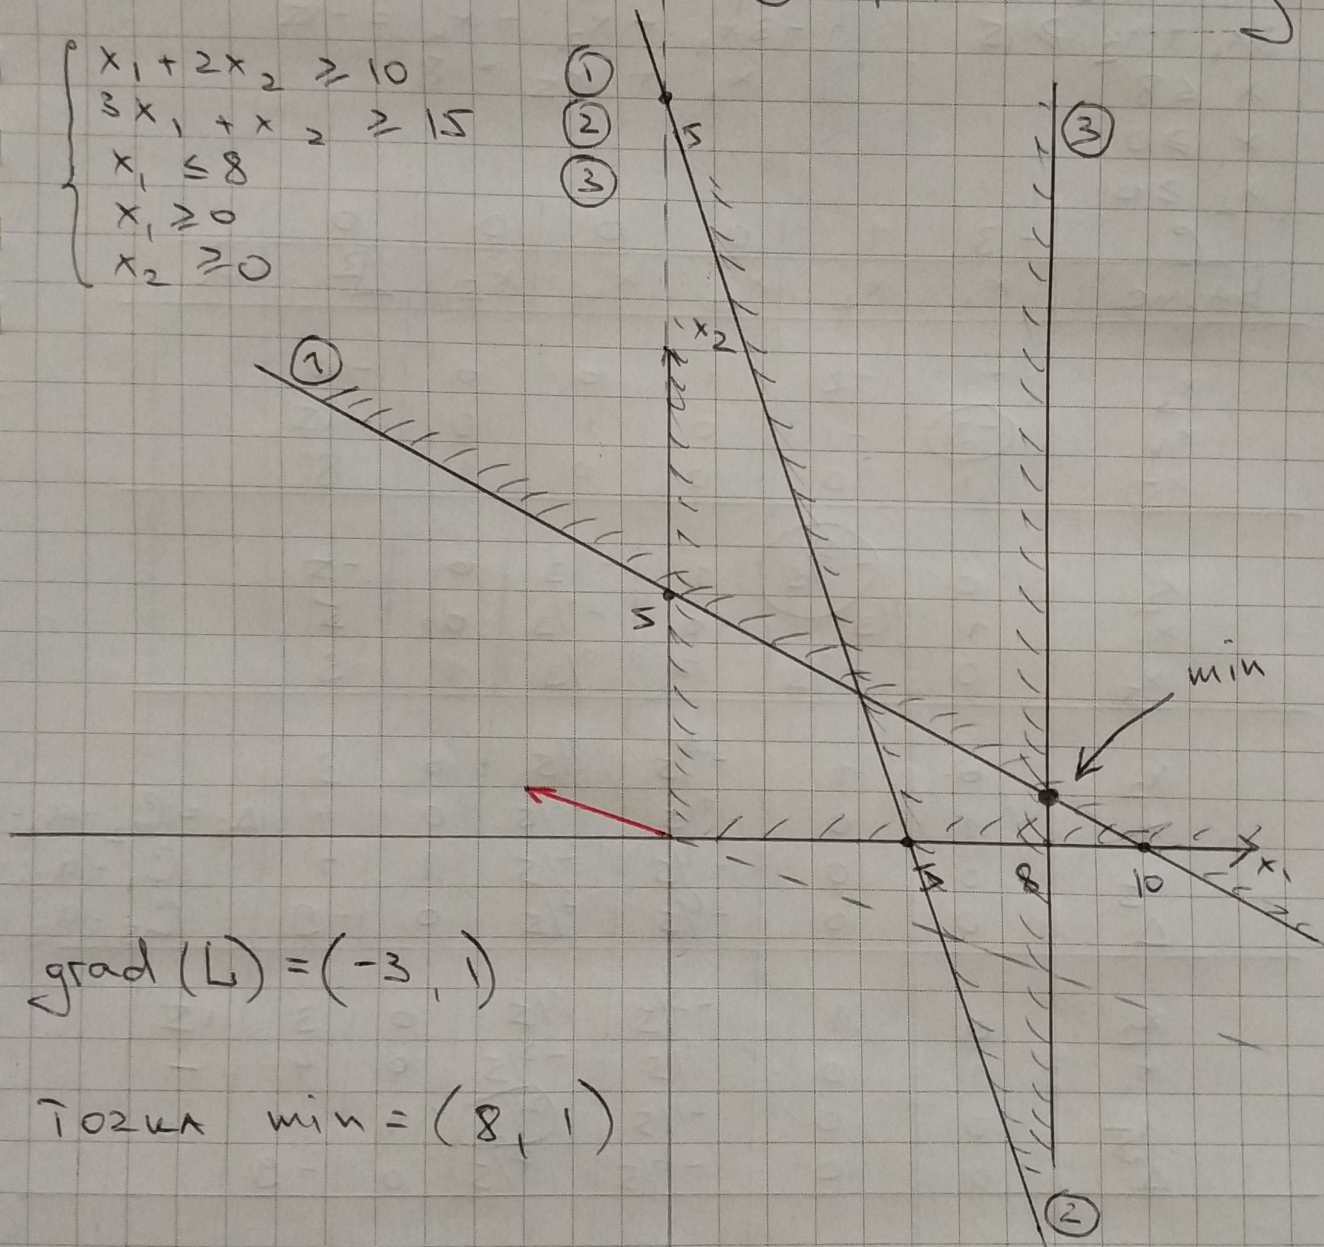 x₁ + 2x₂ ≥ 10 ①
3x₁ + x₂ ≥ 15 ②
x₁ ≤ 8 ③
x₁ ≥ 0
x₂ ≥ 0
③
x₂
①
5
min
8
10
x₁
grad(L) = (-3, 1)
точка min = (8, 1)
②